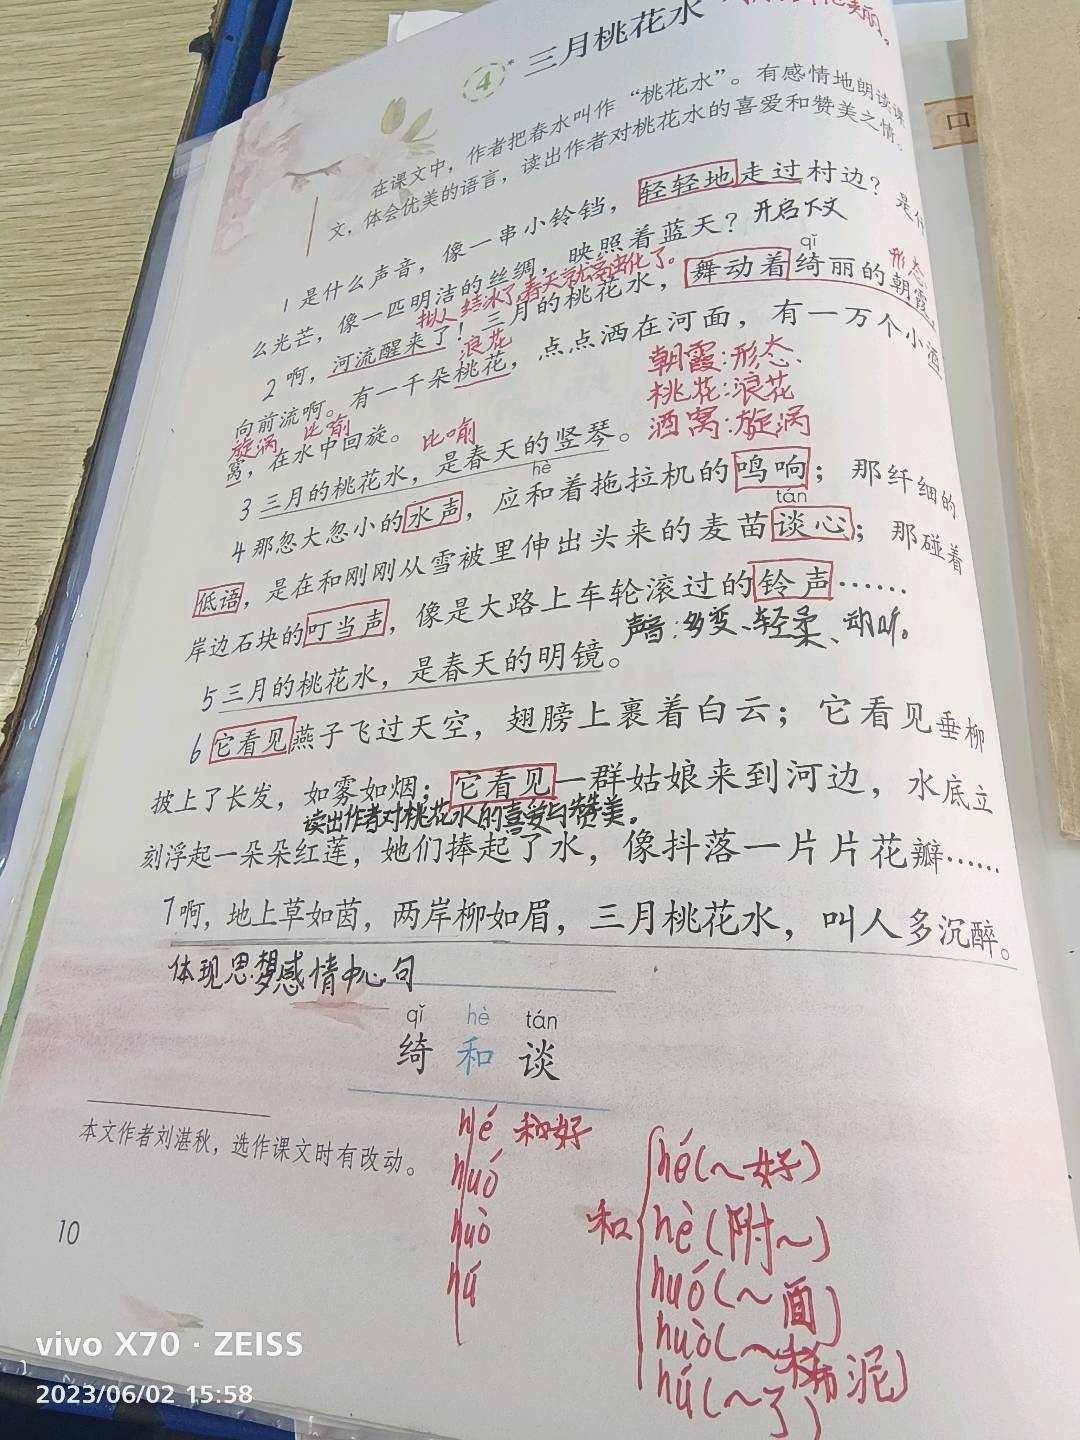 ④* 三月桃花水
在课文中，作者把春水叫作“桃花水”。有感情地朗读课
文，体会优美的语言，读出作者对桃花水的喜爱和赞美之情。
1 是什么声音，像一串小铃铛，轻轻地走过村边？是什
么光芒，像一匹明洁的丝绸，映照着蓝天？开启下文
拟人 结冰了,春天就 化了。
qǐ
形态
2 啊，河流醒来了！三月的桃花水，舞动着绮丽的朝霞，
浪花
向前流啊。有一千朵桃花，点点洒在河面，有一万个小酒
朝霞:形态、
桃花:浪花
酒窝:旋涡
旋涡 比喻
窝，在水中回旋。
比喻
3 三月的桃花水，是春天的竖琴。
hè
4 那忽大忽小的水声，应和着拖拉机的鸣响；那纤细的
tán
低语，是在和刚刚从雪被里伸出头来的麦苗谈心；那碰着
岸边石块的叮当声，像是大路上车轮滚过的铃声……
声音:多变、轻柔、动听。
5 三月的桃花水，是春天的明镜。
6 它看见燕子飞过天空，翅膀上裹着白云；它看见垂柳
披上了长发，如雾如烟；它看见一群姑娘来到河边，水底立
读出作者对桃花水的喜爱与赞美。
刻浮起一朵朵红莲，她们捧起了水，像抖落一片片花瓣……
7 啊，地上草如茵，两岸柳如眉，三月桃花水，叫人多沉醉。
体现思想感情中心句
qǐ hè tán
绮 和 谈
本文作者刘湛秋，选作课文时有改动。
hé 和好
huó
huò
hú
和
hé(～好)
hè(附～)
huó(～面)
huò(～稀泥)
hú(～了)
10
vivo X70 · ZEISS
2023/06/02 15:58